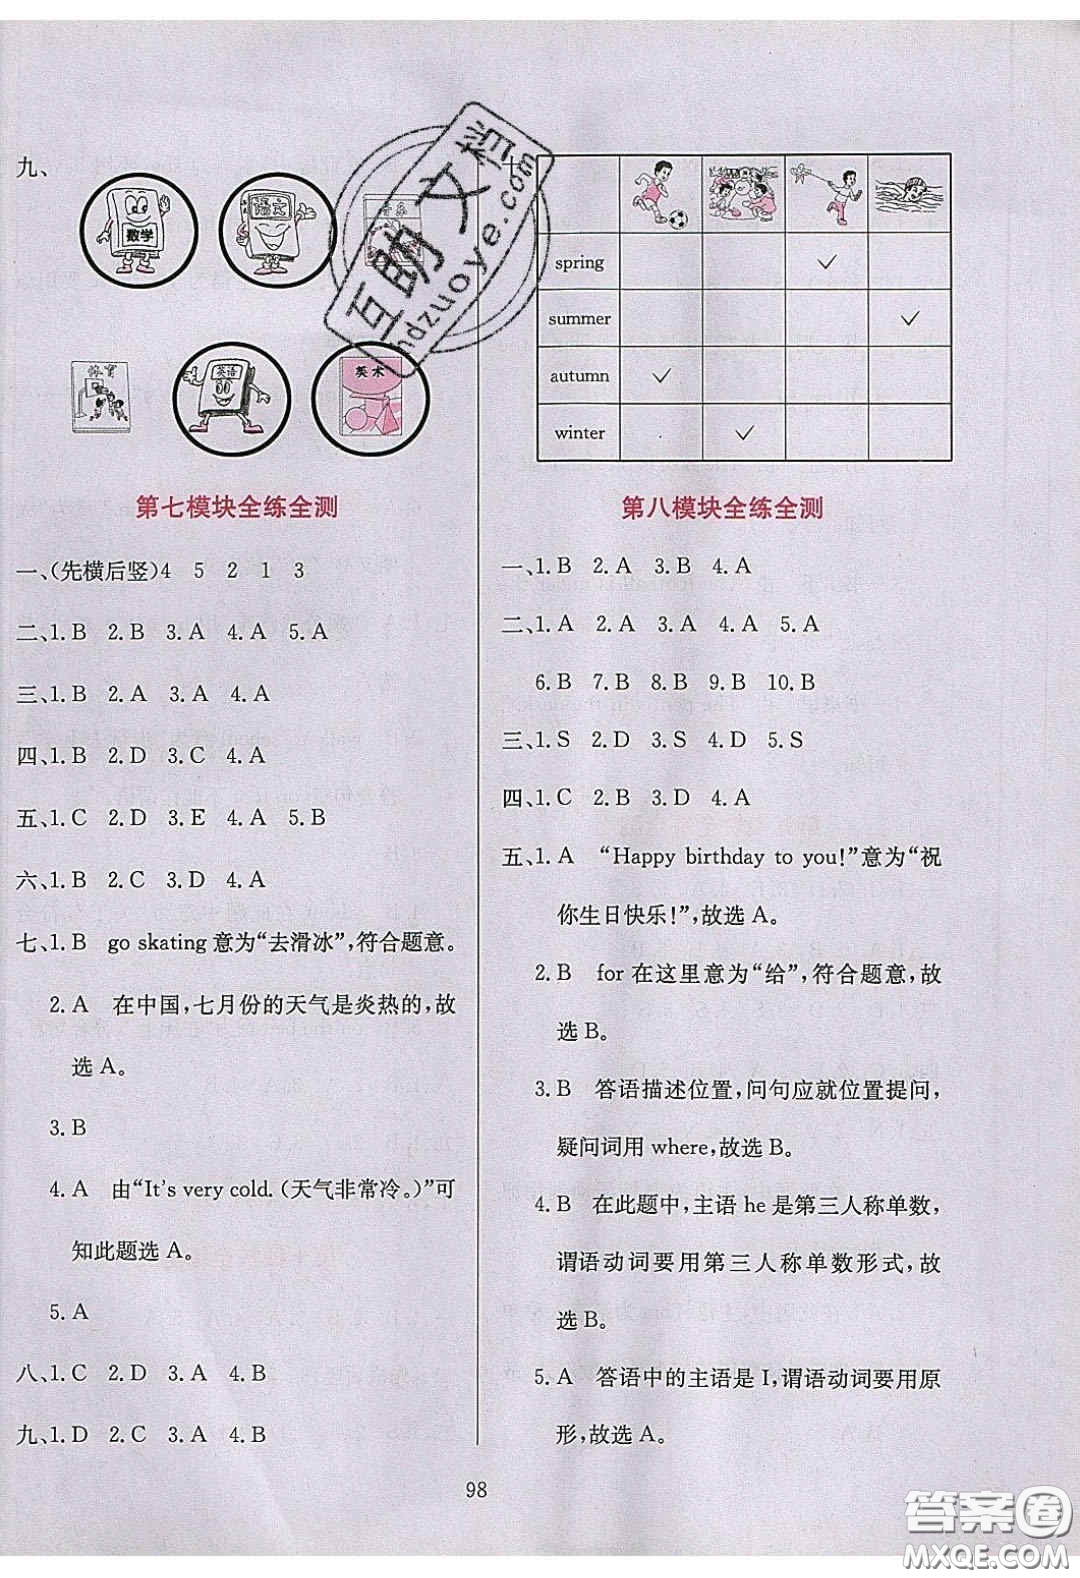 九、
数学
语文
音乐
体育
英语
美术
第七模块全练全测
一、(先横后竖)4 5 2 1 3
二、1. B 2. B 3. A 4. A 5. A
三、1. B 2. A 3. A 4. A
四、1. B 2. D 3. C 4. A
五、1. C 2. D 3. E 4. A 5. B
六、1. B 2. C 3. D 4. A
七、1. B go skating 意为“去滑冰”,符合题意。
2. A 在中国,七月份的天气是炎热的,故
选 A。
3. B
4. A 由“It's very cold. (天气非常冷。)”可
知此题选 A。
5. A
八、1. C 2. D 3. A 4. B
九、1. D 2. C 3. A 4. B
十、
spring ✓
summer ✓
autumn ✓
winter ✓
第八模块全练全测
一、1. B 2. A 3. B 4. A
二、1. A 2. A 3. A 4. A 5. A
6. B 7. B 8. B 9. B 10. B
三、1. S 2. D 3. D 4. D 5. S
四、1. C 2. B 3. D 4. A
五、1. A “Happy birthday to you!”意为“祝
你生日快乐!”,故选 A。
2. B for 在这里意为“给”,符合题意,故
选 B。
3. B 答语描述位置,问句应就位置提问,
疑问词用 where,故选 B。
4. B 在此题中,主语 he 是第三人称单数,
谓语动词要用第三人称单数形式,故
选 B。
5. A 答语中的主语是 I,谓语动词要用原
形,故选 A。
98
互助文档
hdzuoye.com
答案圈
MXQE.COM